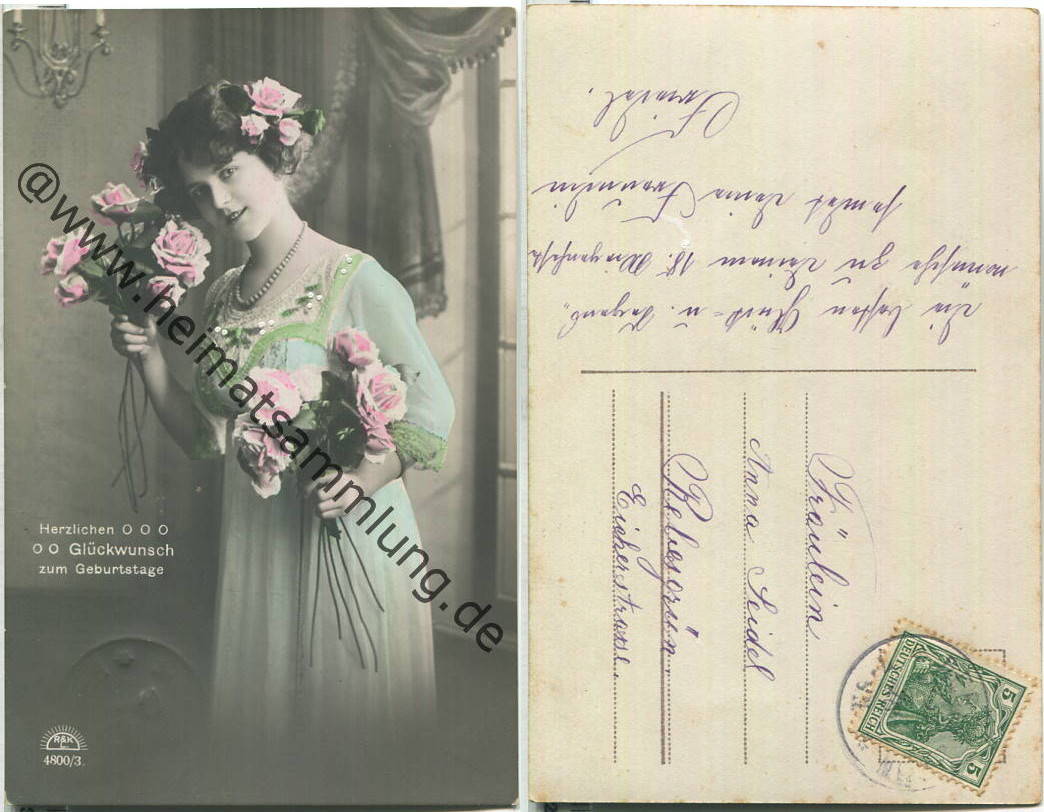 Herzlichen O O O
O O Glückwunsch
zum Geburtstage
R&K
4800/3.
@www.heimatsammlung.de
Die besten Glück- u. Segens„
wünsche zu Deinem 18. Wiegenfeste
sendet Deine Freundin
Fräulein
Anna Seidel
Rebesgrün
Eicherstrasse.
DEUTSCHES REICH
5
5